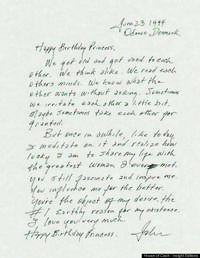 June 23 1994
Odense, Denmark.
Happy Birthday Princess,
We get old and get used to each
other. We think alike. We read each
others minds. We know what the
other wants without asking. Sometimes
we irritate each other a little bit.
Maybe sometimes take each other for
granted.
But once in awhile, like today,
I meditate on it and realize how
lucky I am to share my life with
the greatest woman I ever met.
You still fascinate and inspire me.
You influence me for the better.
You're the object of my desire, the
#1 Earthly reason for my existence.
I love you very much.
Happy Birthday Princess.
John
House of Cash - Insight Editions